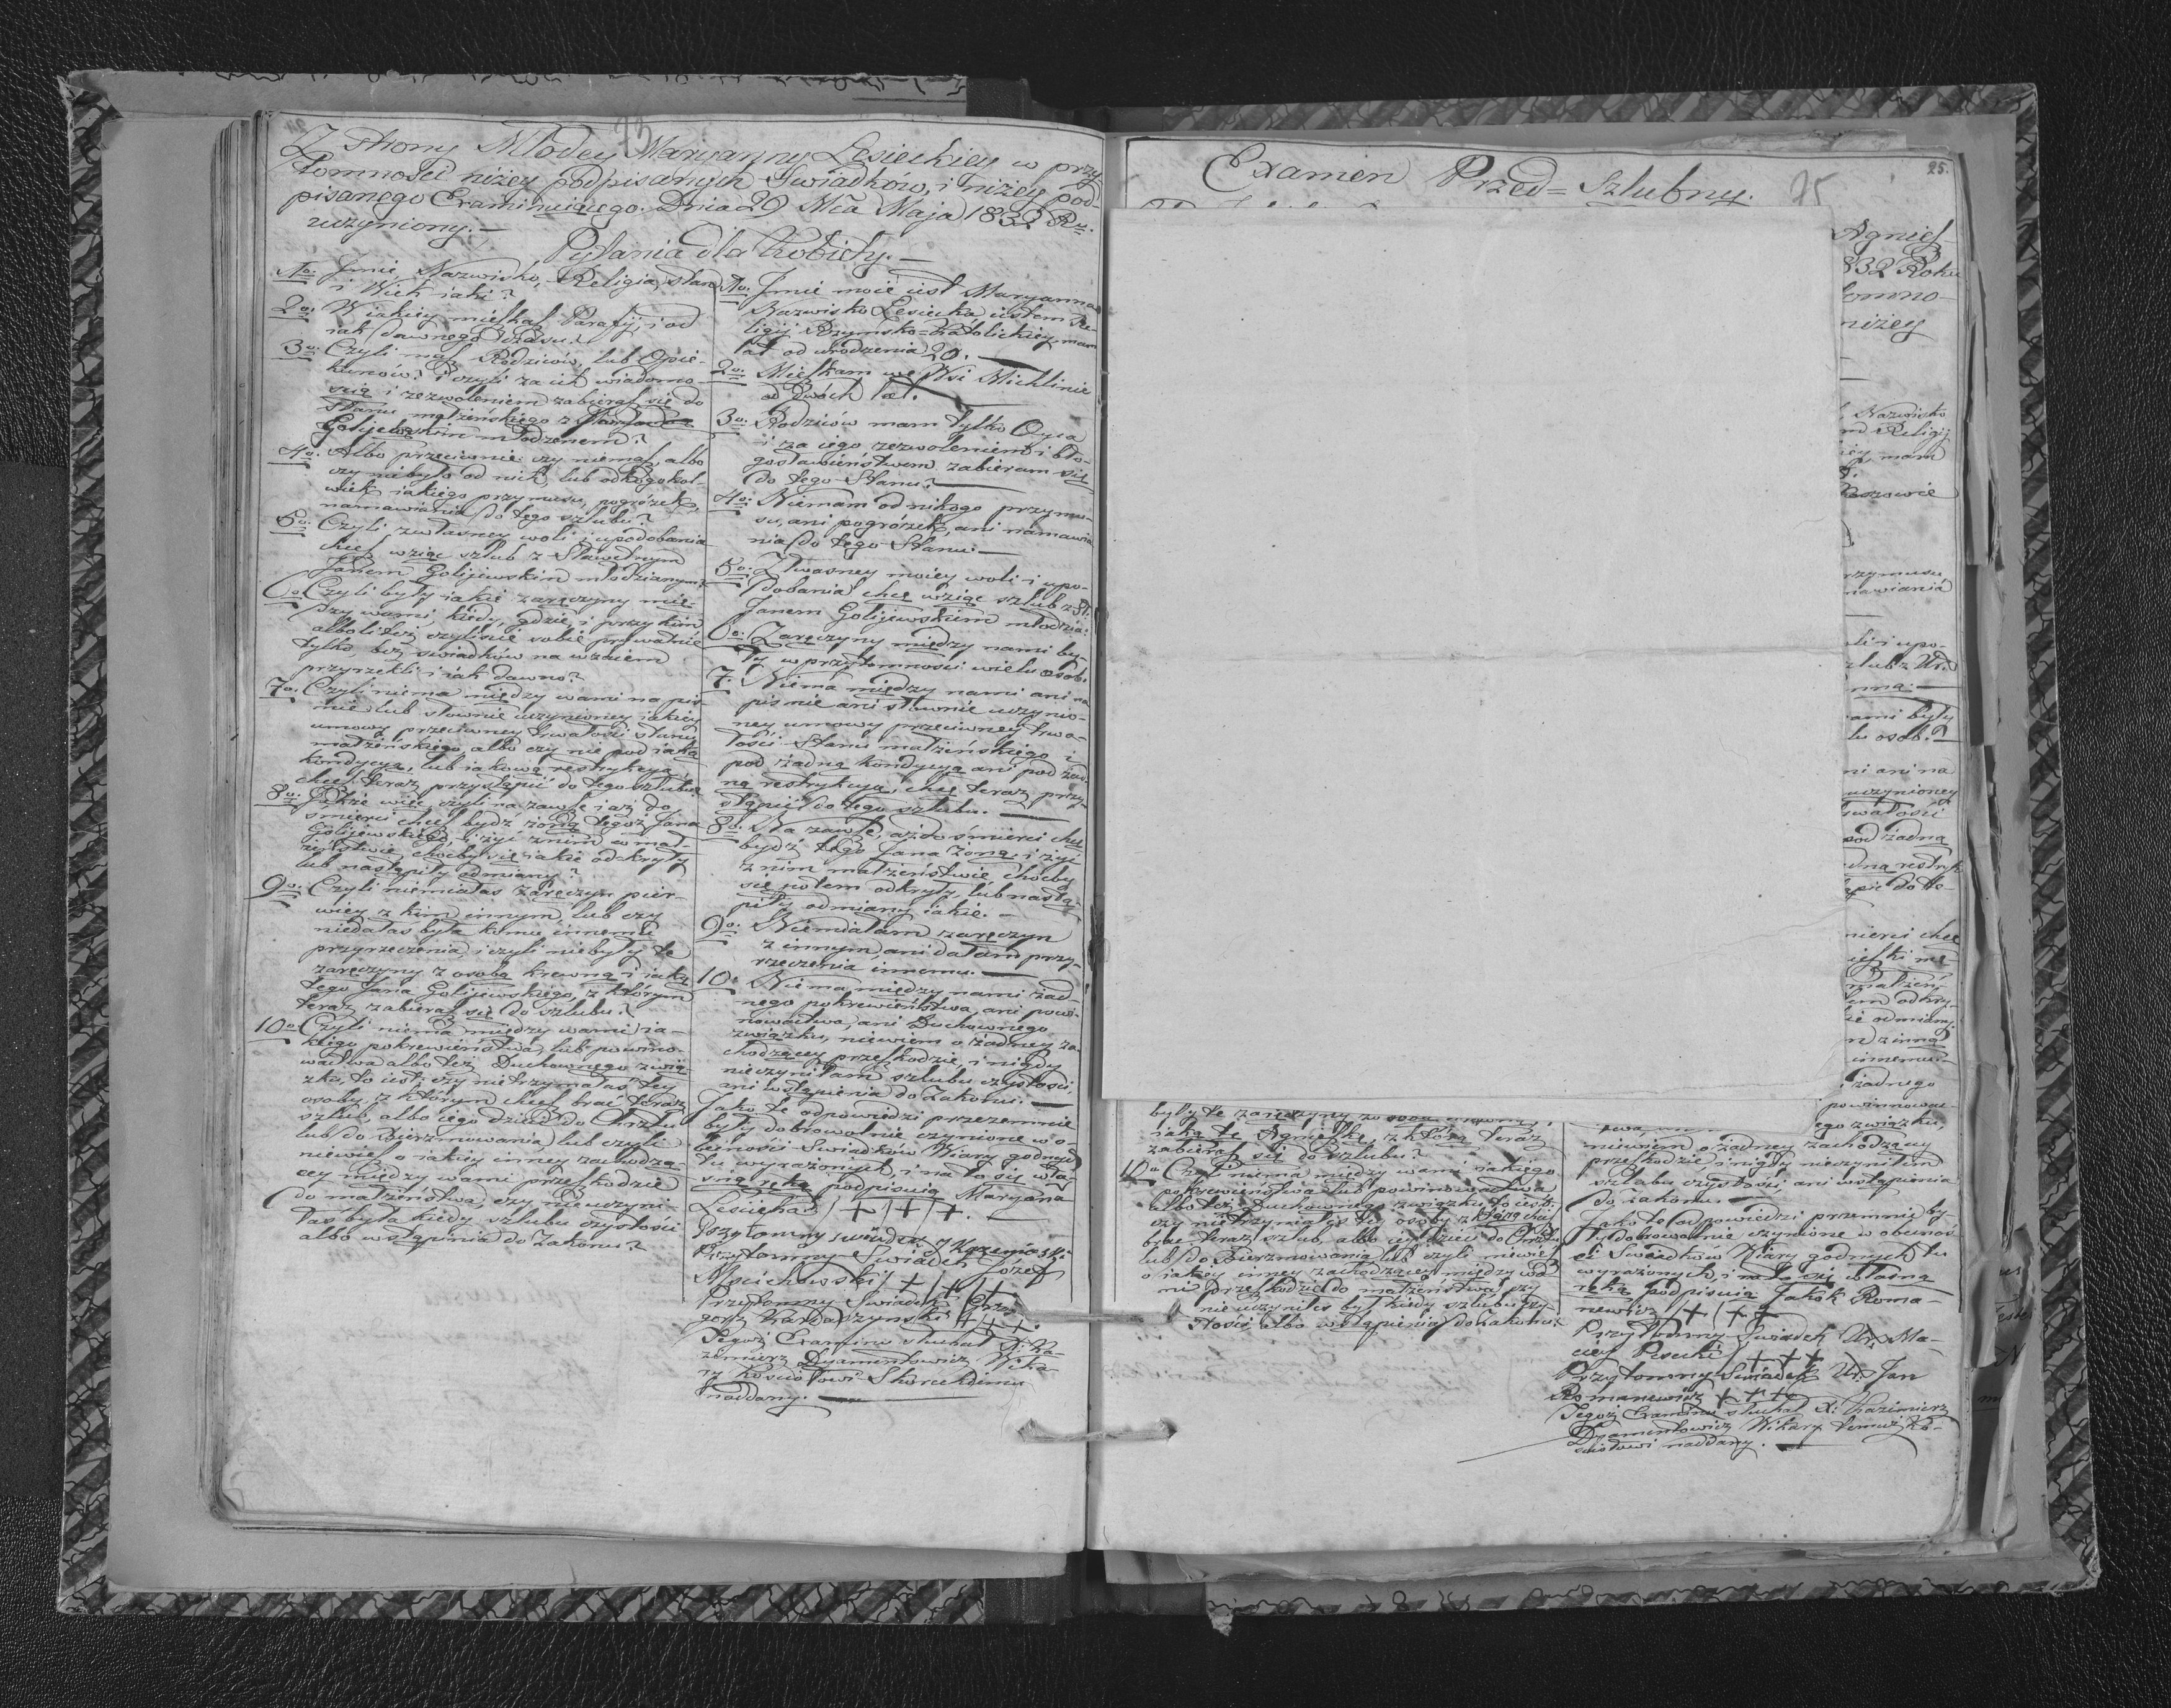 23
Z strony Młodey Maryanny Lesieckiey w przy
tomności niżey podpisanych Swiadków, i niżey pod-
pisanego Examinuiącego. Dnia 29 Mca Maja 1832 Ru.
uczyniony.—
Pytania dla kobiety.—
1o. Jmie, Nazwisko, Religia, stan
i Wiek iaki?
2o. W iakiey mieszkasz Parafij, i od
iak dawnego czasu?
3o. Czyli masz Rodziców, lub Opie-
kunów? i czyli za ich wiadomo-
scią i zezwoleniem zabierasz się do
stanu małżeńskiego z
Golijewskim młodzianem?
4o. Albo przeciwnie: czy niemasz, albo
czy niebyło od nich lub od kogokol-
wiek iakiego przymusu, pogróżek,
namawiania do tego szlubu?
5o. Czyli z własney woli i upodobania
chcesz wziąć szlub z Sławetnym
Janem Golijewskim młodzianym?
6o. Czyli były iakie zaręczyny mię-
dzy wami, kiedy, gdzie, i przy kim
albo li też czyliście sobie prywatnie
tylko, bez swiadków na wzaiem
przyrzekli i iak dawno?
7o. Czyli niema między wami na piś-
mie lub słownie uczynioney iakiey
umowy, przeciwney trwałości stanu
małżeńskiego, albo czy nie pod iaką
kondycyą, lub iakową restrykcyą,
chcesz teraz przystąpić do tego szlubu?
8o. Także więc, czyli na zawsze i aż do
smierci chcesz bydź żoną tegoż Jana
Golijewskiego, i żyć z nim w mał-
żeństwie choćby się iakie odkryły
lub nastąpiły odmiany?
9o. Czyli niemiałas zaręczyn pier-
wiey z kim innym, lub czy
niedałas była komu innemu
przyrzeczenia, i czyli niebyły te
zaręczyny z osobą krewną i iaką
tego Jana Golijewskiego, z którym
teraz zabierasz się do szlubu?
10o. Czyli niema między wami ia-
kiego pokrewieństwa, lub powino-
wactwa albo też Duchownego zwią-
zku, to iest: czy nie trzymałaś tey
osoby, z którym chcesz brać teraz
szlub, albo iego dzieci do Chrztu
lub do Bierzmowania lub czyli
niewiesz o iakiey inney zachodzą-
cey między wami przeszkodzie
do małżeństwa, czy nie uczyni-
łaś była kiedy szlubu czystości
albo wstąpienia do Zakonu?
1o. Jmie moie iest Maryanna
Nazwisko Lesiecka iestem Re-
ligij Rzymsko=Katolickiey, mam
lat od urodzenia 20.—
2o. Mieszkam we Wsi Michlinie
od dwóch lat.
3o. Rodziców mam tylko Oyca
i za iego zezwoleniem i bło-
gosławieństwem zabieram się
do tego Stanu.—
4o. Niemam od nikogo przymu-
su, ani pogróżek, ani namawia
nia do tego Stanu.—
5o. Z własney moiey woli i upo-
dobania chcę wziąć szlub z Sł.
Janem Golijewskiem młodzia:
6o. Zaręczyny między nami by-
ły w przytomności wielu osób.
7. Niema między nami ani na
piśmie ani słownie uczynio-
ney umowy przeciwney trwa-
łości Stanu małżeńskiego i
pod żadną kondycyą ani pod żad-
ną restrykcyą, chcę teraz przy-
stąpić do tego szlubu.—
8o. Na zawsze, aż do śmierci chcę
bydź tego Jana żoną, i żyć
z nim małżeństwie choćby
się potem odkryły, lub nastą-
piły odmiany iakie.—
9o. Niemiałam zaręczyn
z innym, ani dałam przy-
rzeczenia innemu.—
10o. Niema między nami żad-
nego pokrewieństwa, ani powi-
nowactwa, ani Duchownego
związku, niewiem o żadney za-
chodzącey przeszkodzie, i nigdy
nieczyniłam szlubu czystości,
ani wstąpienia do Zakonu.—
Jako te odpowiedzi przezemnie
były dobrowolnie czynione w o-
becności Swiadków Wiary godnych
tu wyrażonych, i na to się wła-
sną ręką podpisuią Maryana
Lesiecka + + +.—
Przytomny swiadek J
Przytomny Swiadek Jozef
Mościchowski + + +
Przytomny Swiadek Grze
gorz + + +.
Tegoż Examinu słuchał X: Ka-
zimierz Dyamentowicz Wika-
ry Kosciołowi
naddany.—
Examen Przed=Szlubny.
25
25.
Agniesz-
832 Roku
tomno-
niżey
Nazwisko
Religij
mam
rzymusu
mawiania
li i upo-
szlub z Ur.
nna.—
ami były
lu osób.—
ni ani na
uczynioney
trwałości
pod żadną
dną restryk
ąpić do te-
mierci chcę
małżeń-
tem odkry
ie odmiany
n z inną
innemu.
żadnego
powinnowac-
ego związku,
były te zaręczyny z osobą krewną,
iaką tę Agnieszkę, z którą teraz
zabierasz się do szlubu?
10o. Czyli niema między wami iakiego
pokrewieństwa lub powinowactwa
albo też Duchownego związku, to iest:
czy nie trzymałeś tey osoby z którą chcesz
brać teraz szlub, albo iey dzieci do Chrztu
lub do Bierzmowania lub czyli niewiesz
o iakiey inney zachodzącey między wa
mi przeszkodzie do małżeństwa, czy
nie uczyniłes był kiedy szlubu czy-
stości albo wstąpienia do zakonu?
niewiem o żadney zachodzącey
przeszkodzie, i nigdy nieczyniłem
szlubu czystości, ani wstąpienia
do zakonu.—
Jako te odpowiedzi przezemnie by-
ły dobrowolnie czynione w obecnoś
ci Swiadków Wiary godnych tu
wyrażonych, i na to się własną
ręką podpisuią Jakób Roma-
newicz + + +
Przytomny Swiadek Ur. Ma-
ciey Pisecki + + +
Przytomny Swiadek Ur. Jan
Romanewicz + + +
Tegoż Examinu słuchał X: Kazimierz
Dyamentowicz Wikary temuż Ko-
sciołowi naddany.—